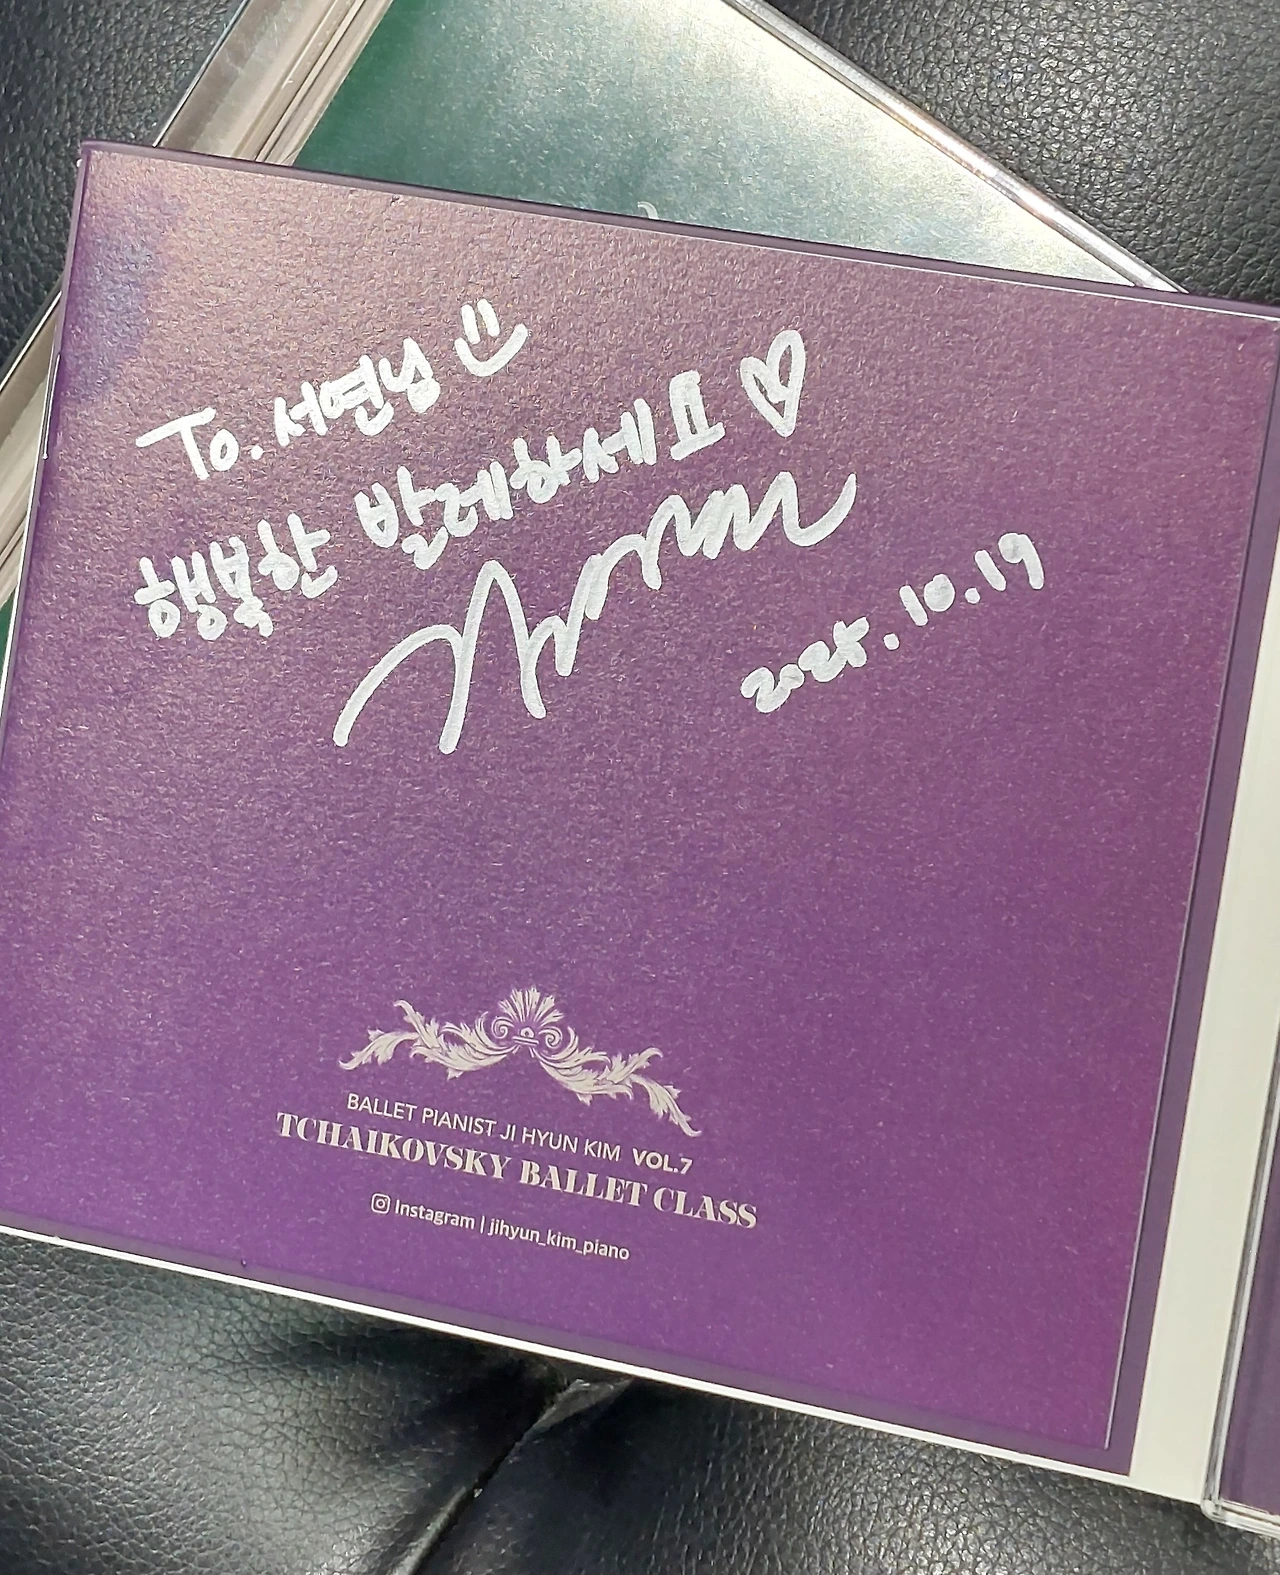 To. 서연님
행복한 발레하세요 ♡
2025.10.19
BALLET PIANIST JI HYUN KIM VOL.7
TCHAIKOVSKY BALLET CLASS
Instagram | jihyun_kim_piano